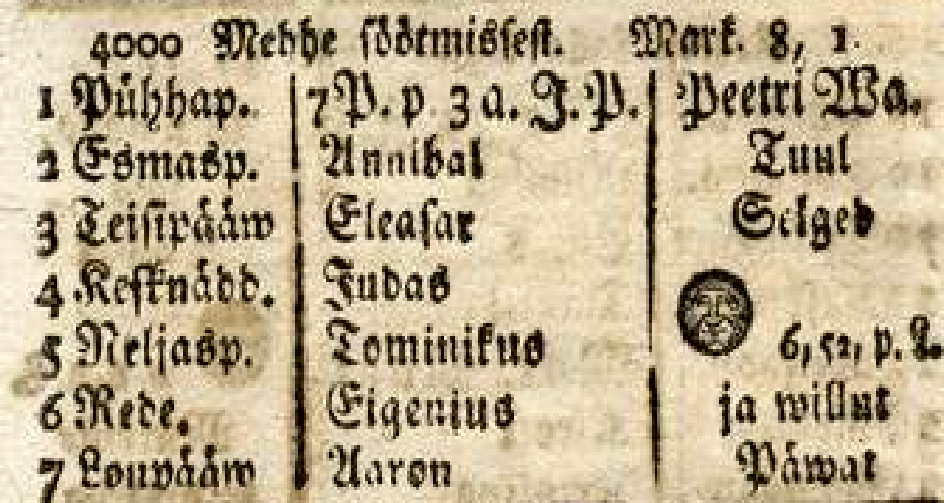 4000 Mehhe söötmissest. Mark. 8, 1.
1 Pühhap. 7 P. p. 3 a. J. P. Peetri Wa.
2 Esmasp. Annibal Tuul
3 Teisipääw Eleasar Selged
4 Kesknädd. Judas
5 Neljasp. Tominikus 6, 52, p. L.
6 Rede. Eigenius ja willut
7 Loupääw Aaron Päwat